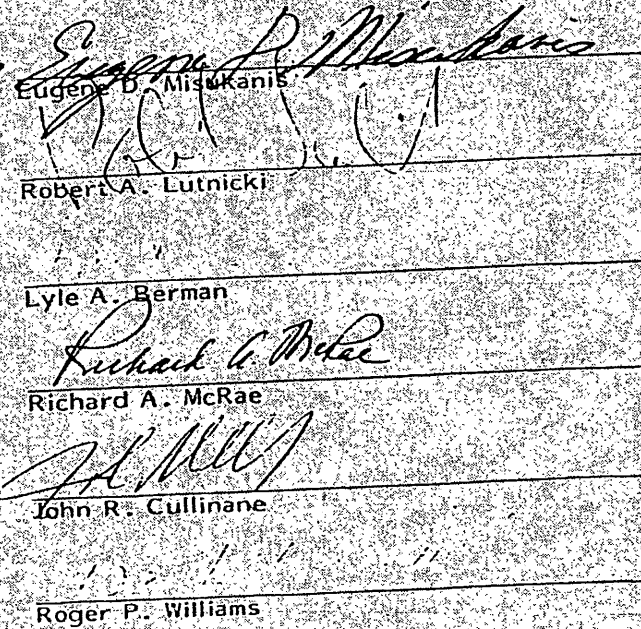 Eugene D. Misukanis
Eugene D. Misukanis
Robert A. Lutnicki
Lyle A. Berman
Richard A. McRae
Richard A. McRae
John R. Cullinane
Roger P. Williams